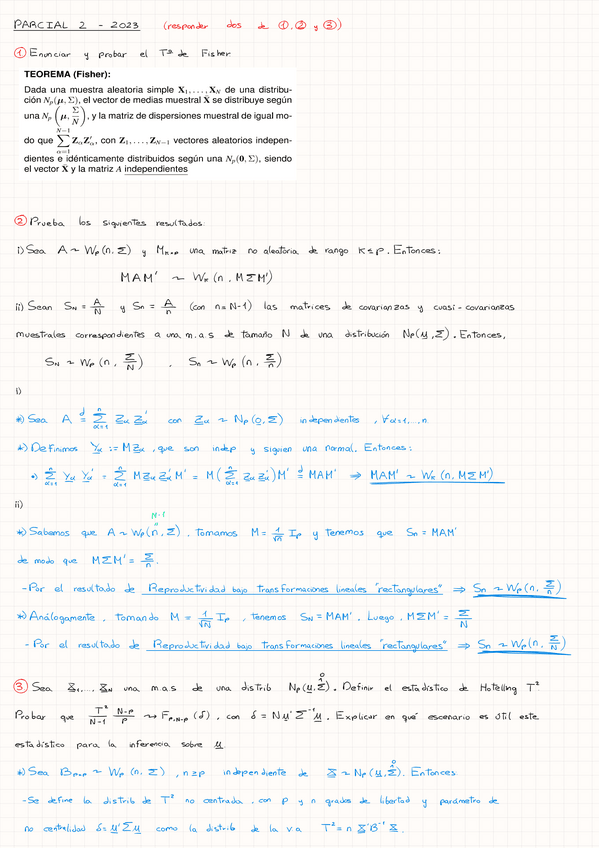 PARCIAL 2 - 2023 (responder dos de ①,② y ③)
① Enunciar y probar el Tª de Fisher
TEOREMA (Fisher):
Dada una muestra aleatoria simple X₁, . . . , X_N de una distribu-
ción N_p(μ, Σ), el vector de medias muestral X̄ se distribuye según
una N_p(μ, Σ/N), y la matriz de dispersiones muestral de igual mo-
do que ∑_{α=1}^{N−1} Z_α Z'_α, con Z₁, . . . , Z_{N−1} vectores aleatorios indepen-
dientes e idénticamente distribuidos según una N_p(0, Σ), siendo
el vector X̄ y la matriz A independientes
② Prueba los siguientes resultados:
i) Sea A ~ W_p(n, Σ) y M_{k×p} una matriz no aleatoria de rango k ≤ p. Entonces:
MAM' ~ W_k(n, MΣM')
ii) Sean S_N = A/N y S_n = A/n (con n = N-1) las matrices de covarianzas y cuasi-covarianzas
muestrales correspondientes a una m.a.s de tamaño N de una distribución N_p(μ, Σ). Entonces,
S_N ~ W_p(n, Σ/N) , S_n ~ W_p(n, Σ/n)
i)
*) Sea A =^d ∑_{α=1}^{n} Z_α Z_α' con Z_α ~ N_p(0, Σ) independientes, ∀α=1,...,n.
*) Definimos Y_α := M Z_α, que son indep y siguen una normal. Entonces:
*) ∑_{α=1}^{n} Y_α Y_α' = ∑_{α=1}^{n} M Z_α Z_α' M' = M(∑_{α=1}^{n} Z_α Z_α')M' =^d MAM' ⇒ MAM' ~ W_k(n, MΣM')
ii)
N-1
*) Sabemos que A ~ W_p(n, Σ), tomamos M = 1/√n I_p y tenemos que S_n = MAM'
de modo que MΣM' = Σ/n.
- Por el resultado de Reproductividad bajo transformaciones lineales "rectangulares" ⇒ S_n ~ W_p(n, Σ/n)
*) Análogamente, tomando M = 1/√N I_p, tenemos S_N = MAM'. Luego, MΣM' = Σ/N
- Por el resultado de Reproductividad bajo transformaciones lineales "rectangulares" ⇒ S_n ~ W_p(n, Σ/n)
③ Sea X₁,... X_N una m.a.s de una distrib N_p(μ, Σ). Definir el estadístico de Hotelling T²
Probar que T²/(N-1) (N-p)/p ⇝ F_{p,N-p}(δ), con δ = Nμ'Σ⁻¹μ. Explicar en qué escenario es útil este
estadístico para la inferencia sobre μ.
*) Sea B_{p×p} ~ W_p(n, Σ), n≥p independiente de X ~ N_p(μ, Σ). Entonces:
- Se define la distrib de T² no centrada, con p y n grados de libertad y parámetro de
no centralidad δ = μ'Σμ como la distrib de la v.a T² = n X'B⁻¹ X.